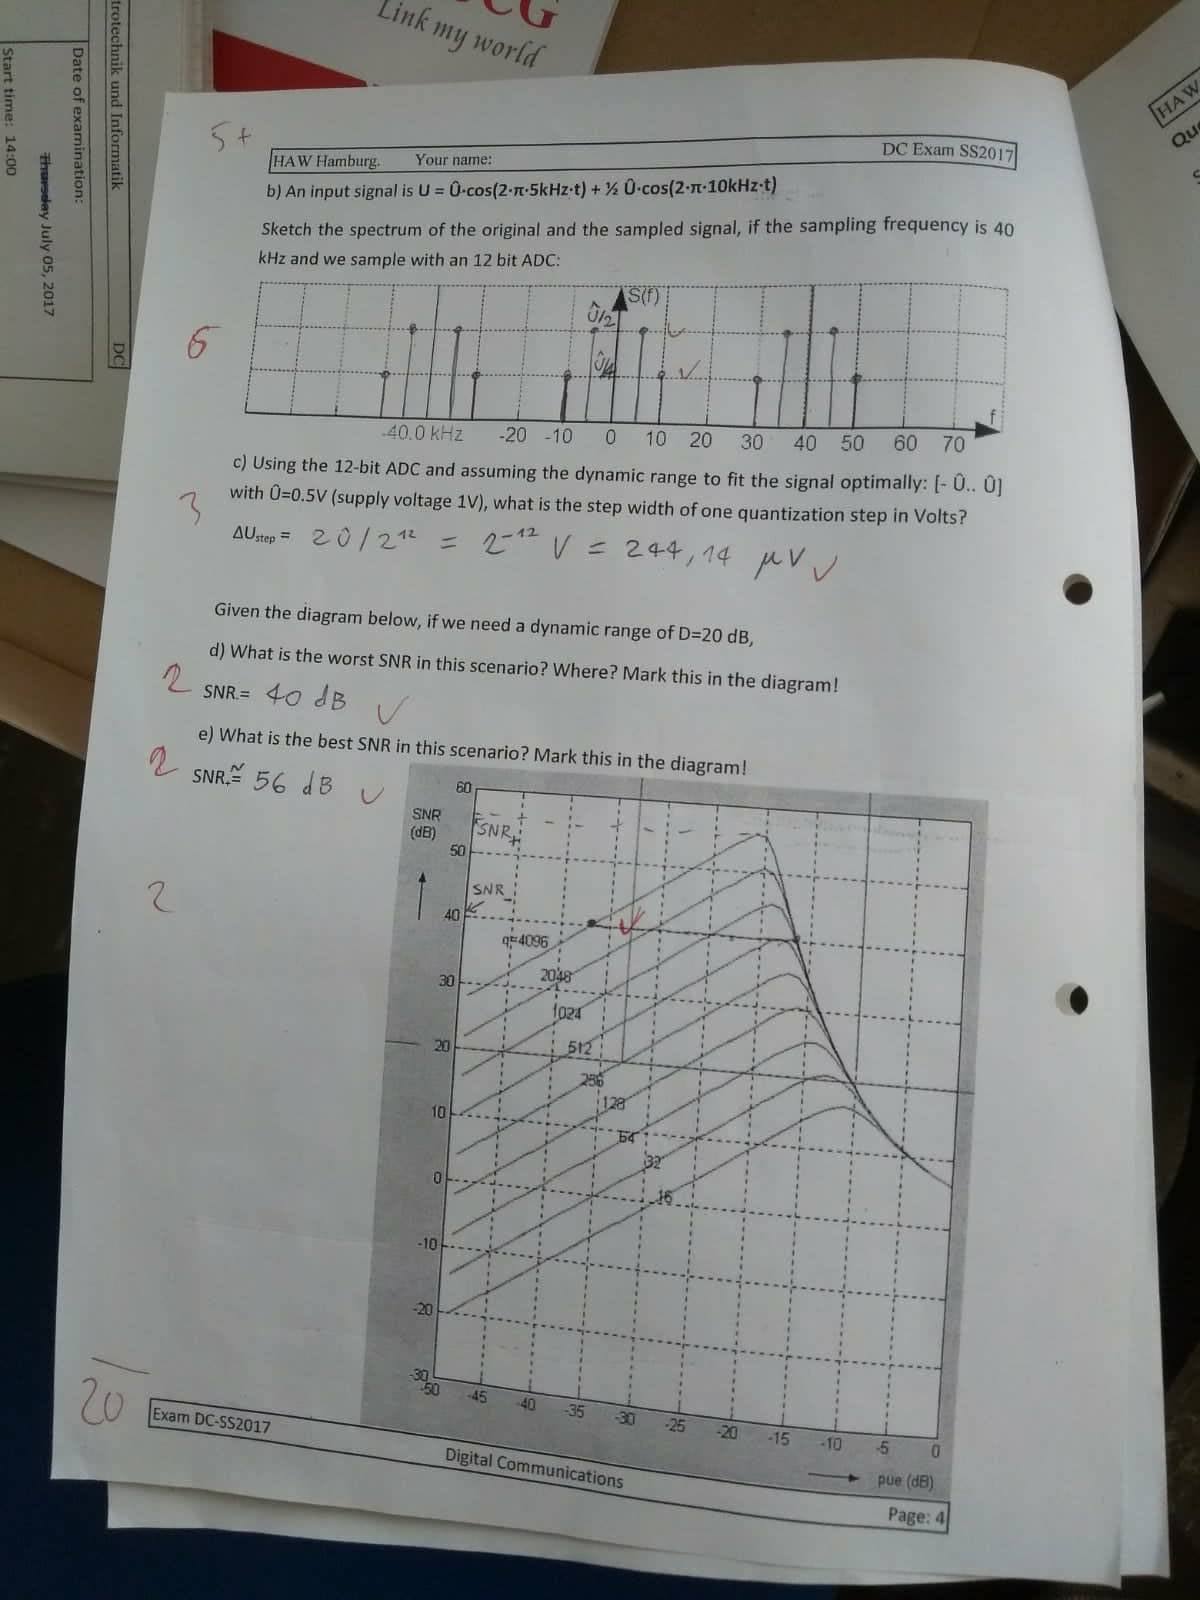 CG
Link my world
trotechnik und Informatik
DC
Date of examination:
Thursday July 05, 2017
Start time: 14:00
HAW
Que
5+
HAW Hamburg. Your name: DC Exam SS2017
b) An input signal is U = Û·cos(2·π·5kHz·t) + ½ Û·cos(2·π·10kHz·t)
Sketch the spectrum of the original and the sampled signal, if the sampling frequency is 40
kHz and we sample with an 12 bit ADC:
6
S(f)
Û/2
Û/4
f
-40.0 kHz -20 -10 0 10 20 30 40 50 60 70
c) Using the 12-bit ADC and assuming the dynamic range to fit the signal optimally: [- Û.. Û]
with Û=0.5V (supply voltage 1V), what is the step width of one quantization step in Volts?
3
ΔUstep = 2Û/2¹² = 2⁻¹² V = 244,14 μV ✓
Given the diagram below, if we need a dynamic range of D=20 dB,
d) What is the worst SNR in this scenario? Where? Mark this in the diagram!
2
SNR-= 40 dB ✓
e) What is the best SNR in this scenario? Mark this in the diagram!
2
SNR+≅ 56 dB ✓
2
SNR
(dB)
60
50
40
30
20
10
0
-10
-20
-30
SNR+
SNR-
q=4096
2048
1024
512
256
128
64
32
16
-50 -45 -40 -35 -30 -25 -20 -15 -10 -5 0
pue (dB)
20
Exam DC-SS2017
Digital Communications
Page: 4